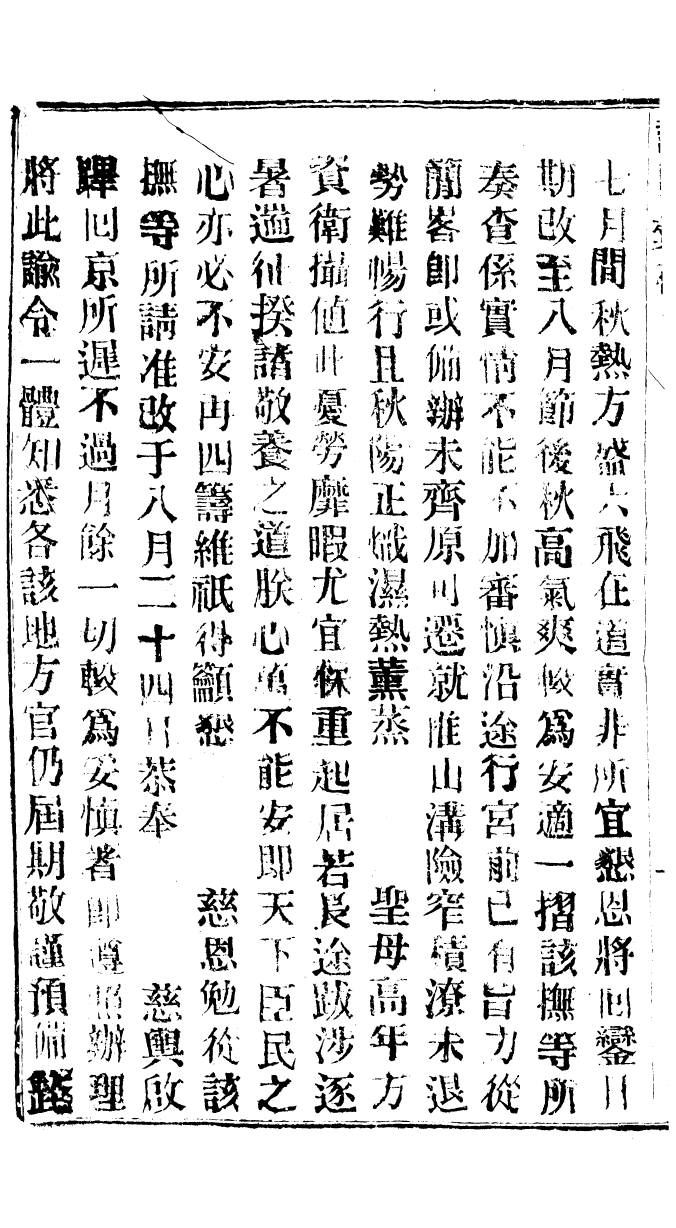 七月間秋熱方盛六飛在道實非所宜懇恩將回鑾日
期改至八月節後秋高氣爽較爲安適一摺該撫等所
奏查係實情不能不加審慎沿途行宮前已有旨力從
簡峇即或備辦未齊原可遷就惟山溝險窄積潦未退
勢難暢行且秋陽正熾濕熱薰蒸 聖母高年方
資衛攝值此憂勞靡暇尤宜保重起居若長途跋涉逐
暑遄征揆諸敬養之道朕心萬不能安即天下臣民之
心亦必不安再四籌維祇得籲懇 慈恩勉從該
撫等所請准改于八月二十四日恭奉 慈輿啟
蹕回京所遲不過月餘一切較爲妥慎著即遵照辦理
將此諭令一體知悉各該地方官仍屆期敬謹預備